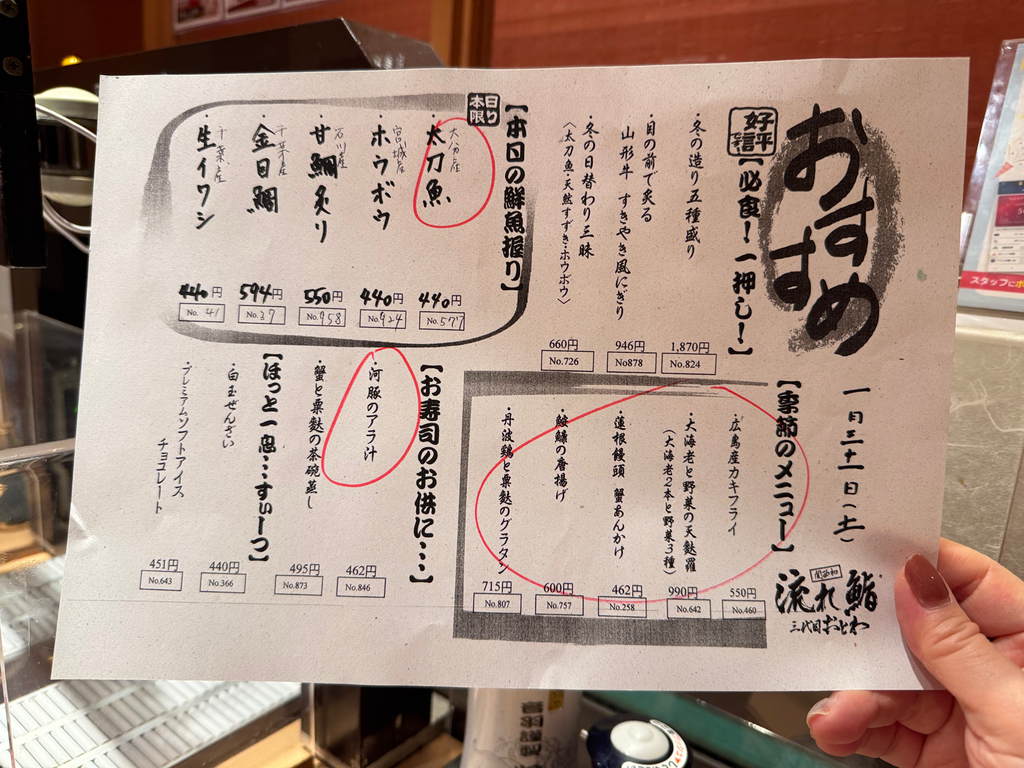 おすすめ
一月三十一日(土)
関西初
流れ鮨
三代目おとわ
好評
【必食!一押し!】
・冬の造り五種盛り
1,870円
No.824
・目の前で炙る
山形牛 すきやき風にぎり
946円
No878
・冬の日替わり三昧
(太刀魚・天然すずき・ホウボウ)
660円
No.726
本日限り
【本日の鮮魚握り】
大分産
・太刀魚
440円
No.577
宮城産
・ホウボウ
440円
No.924
石川産
・甘鯛炙り
550円
No.958
千葉産
・金目鯛
594円
No.37
千葉産
・生イワシ
440円
No.41
【季節のメニュー】
・広島産カキフライ
550円
No.460
・大海老と野菜の天麩羅
(大海老2本と野菜3種)
990円
No.642
・蓮根饅頭 蟹あんかけ
462円
No.258
・鮟鱇の唐揚げ
600円
No.757
・丹波鶏と粟麩のグラタン
715円
No.807
【お寿司のお供に…】
・河豚のアラ汁
462円
No.846
・蟹と粟麩の茶碗蒸し
495円
No.873
【ほっと一息…すぃーつ】
・白玉ぜんざい
440円
No.366
・プレミアムソフトアイス
チョコレート
451円
No.643
スタッフに